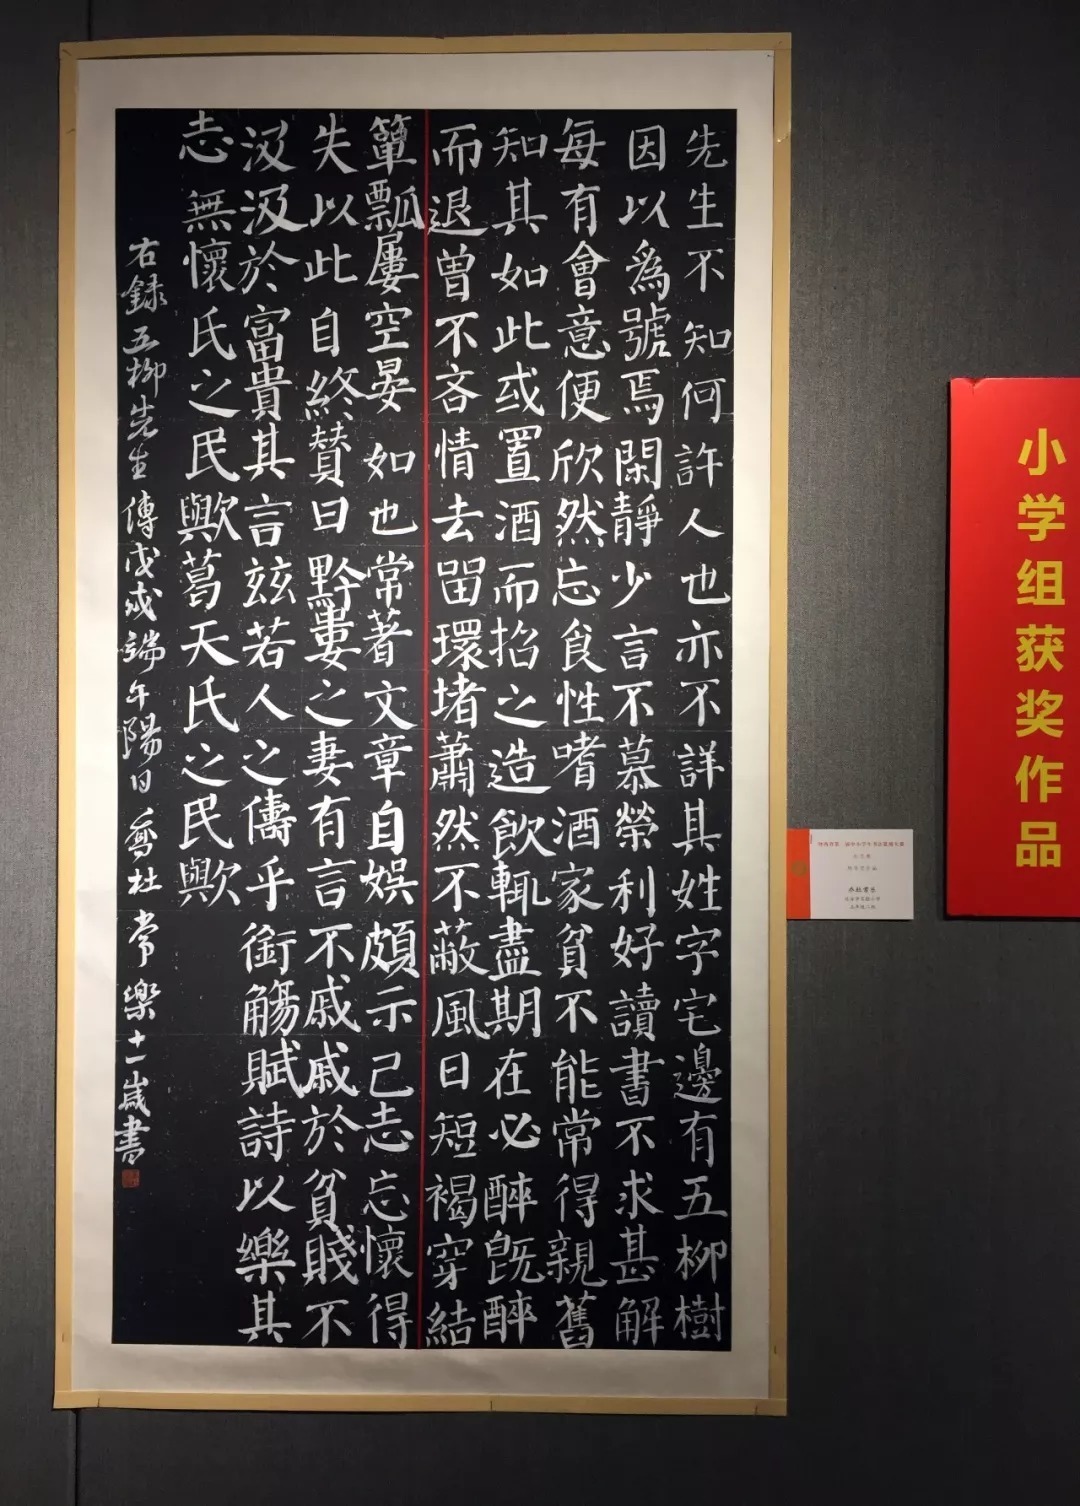 先生不知何許人也亦不詳其姓字宅邊有五柳樹
因以爲號焉閑靜少言不慕榮利好讀書不求甚解
每有會意便欣然忘食性嗜酒家貧不能常得親舊
知其如此或置酒而招之造飲輒盡期在必醉既醉
而退曾不吝情去留環堵蕭然不蔽風日短褐穿結
簞瓢屢空晏如也常著文章自娛頗示己志忘懷得
失以此自終贊曰黔婁之妻有言不戚戚於貧賤不
汲汲於富貴其言茲若人之儔乎銜觴賦詩以樂其
志無懷氏之民歟葛天氏之民歟
右録五柳先生傳戊戌端午陽日喬杜常樂十一歲書
乔杜常乐
小学组获奖作品